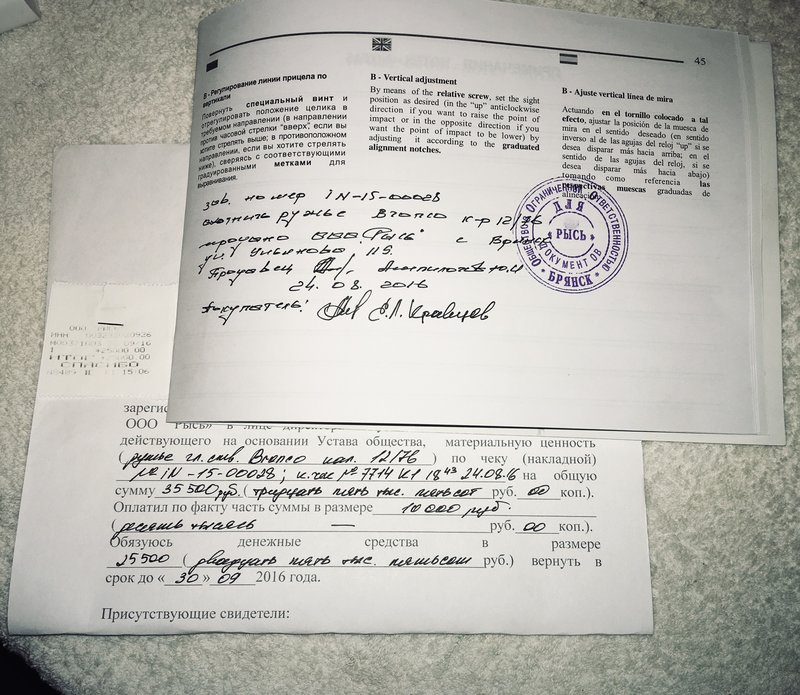 45
В - Регулирование линии прицела по
вертикали
Повернуть специальный винт и
отрегулировать положение целика в
требуемом направлении (в направлении
против часовой стрелки "вверх", если вы
хотите стрелять выше; в противоположном
направлении, если вы хотите стрелять
ниже), сверяясь с соответствующими
градуированными метками для
выравнивания.
B - Vertical adjustment
By means of the relative screw, set the sight
position as desired (in the “up” anticlockwise
direction if you want to raise the point of
impact or in the opposite direction if you
want the point of impact to be lower) by
adjusting it according to the graduated
alignment notches.
B - Ajuste vertical línea de mira
Actuando en el tornillo colocado a tal
efecto, ajustar la posición de la muesca de
mira en el sentido deseado (en sentido
inverso al de las agujas del reloj “up” si se
desea disparar más hacia arriba; en el
sentido de las agujas del reloj, si se
desea disparar más hacia abajo)
tomando como referencia las
respectivas muescas graduadas de
alineación.
зав. номер IN-15-00028
ружье Bronco к-р 12/76
ООО "Рысь" г. Брянск
ул. Ульянова 119.
Продавец
24.08.2016
покупатель: Е.Л. Кравцов
Общество с Ограниченной Ответственностью
ДЛЯ
"РЫСЬ"
ДОКУМЕНТОВ
БРЯНСК
ООО
09-16
ИТОГ
СПАСИБО
15:06
зарегис
ООО "Рысь" в лице директора
действующего на основании Устава общества, материальную ценность
(ружье гл.ств. Bronco кал. 12/76) по чеку (накладной)
№ IN-15-00028; к.чек № 7714 К1 18 43 24.08.16 на общую
сумму 35 500 руб. (тридцать пять тыс. пятьсот руб. 00 коп.).
Оплатил по факту часть суммы в размере 10 000 руб.
(десять тысяч — руб. 00 коп.).
Обязуюсь денежные средства в размере
25 500 (двадцать пять тыс. пятьсот руб.) вернуть в
срок до « 30 » 09 2016 года.
Присутствующие свидетели: